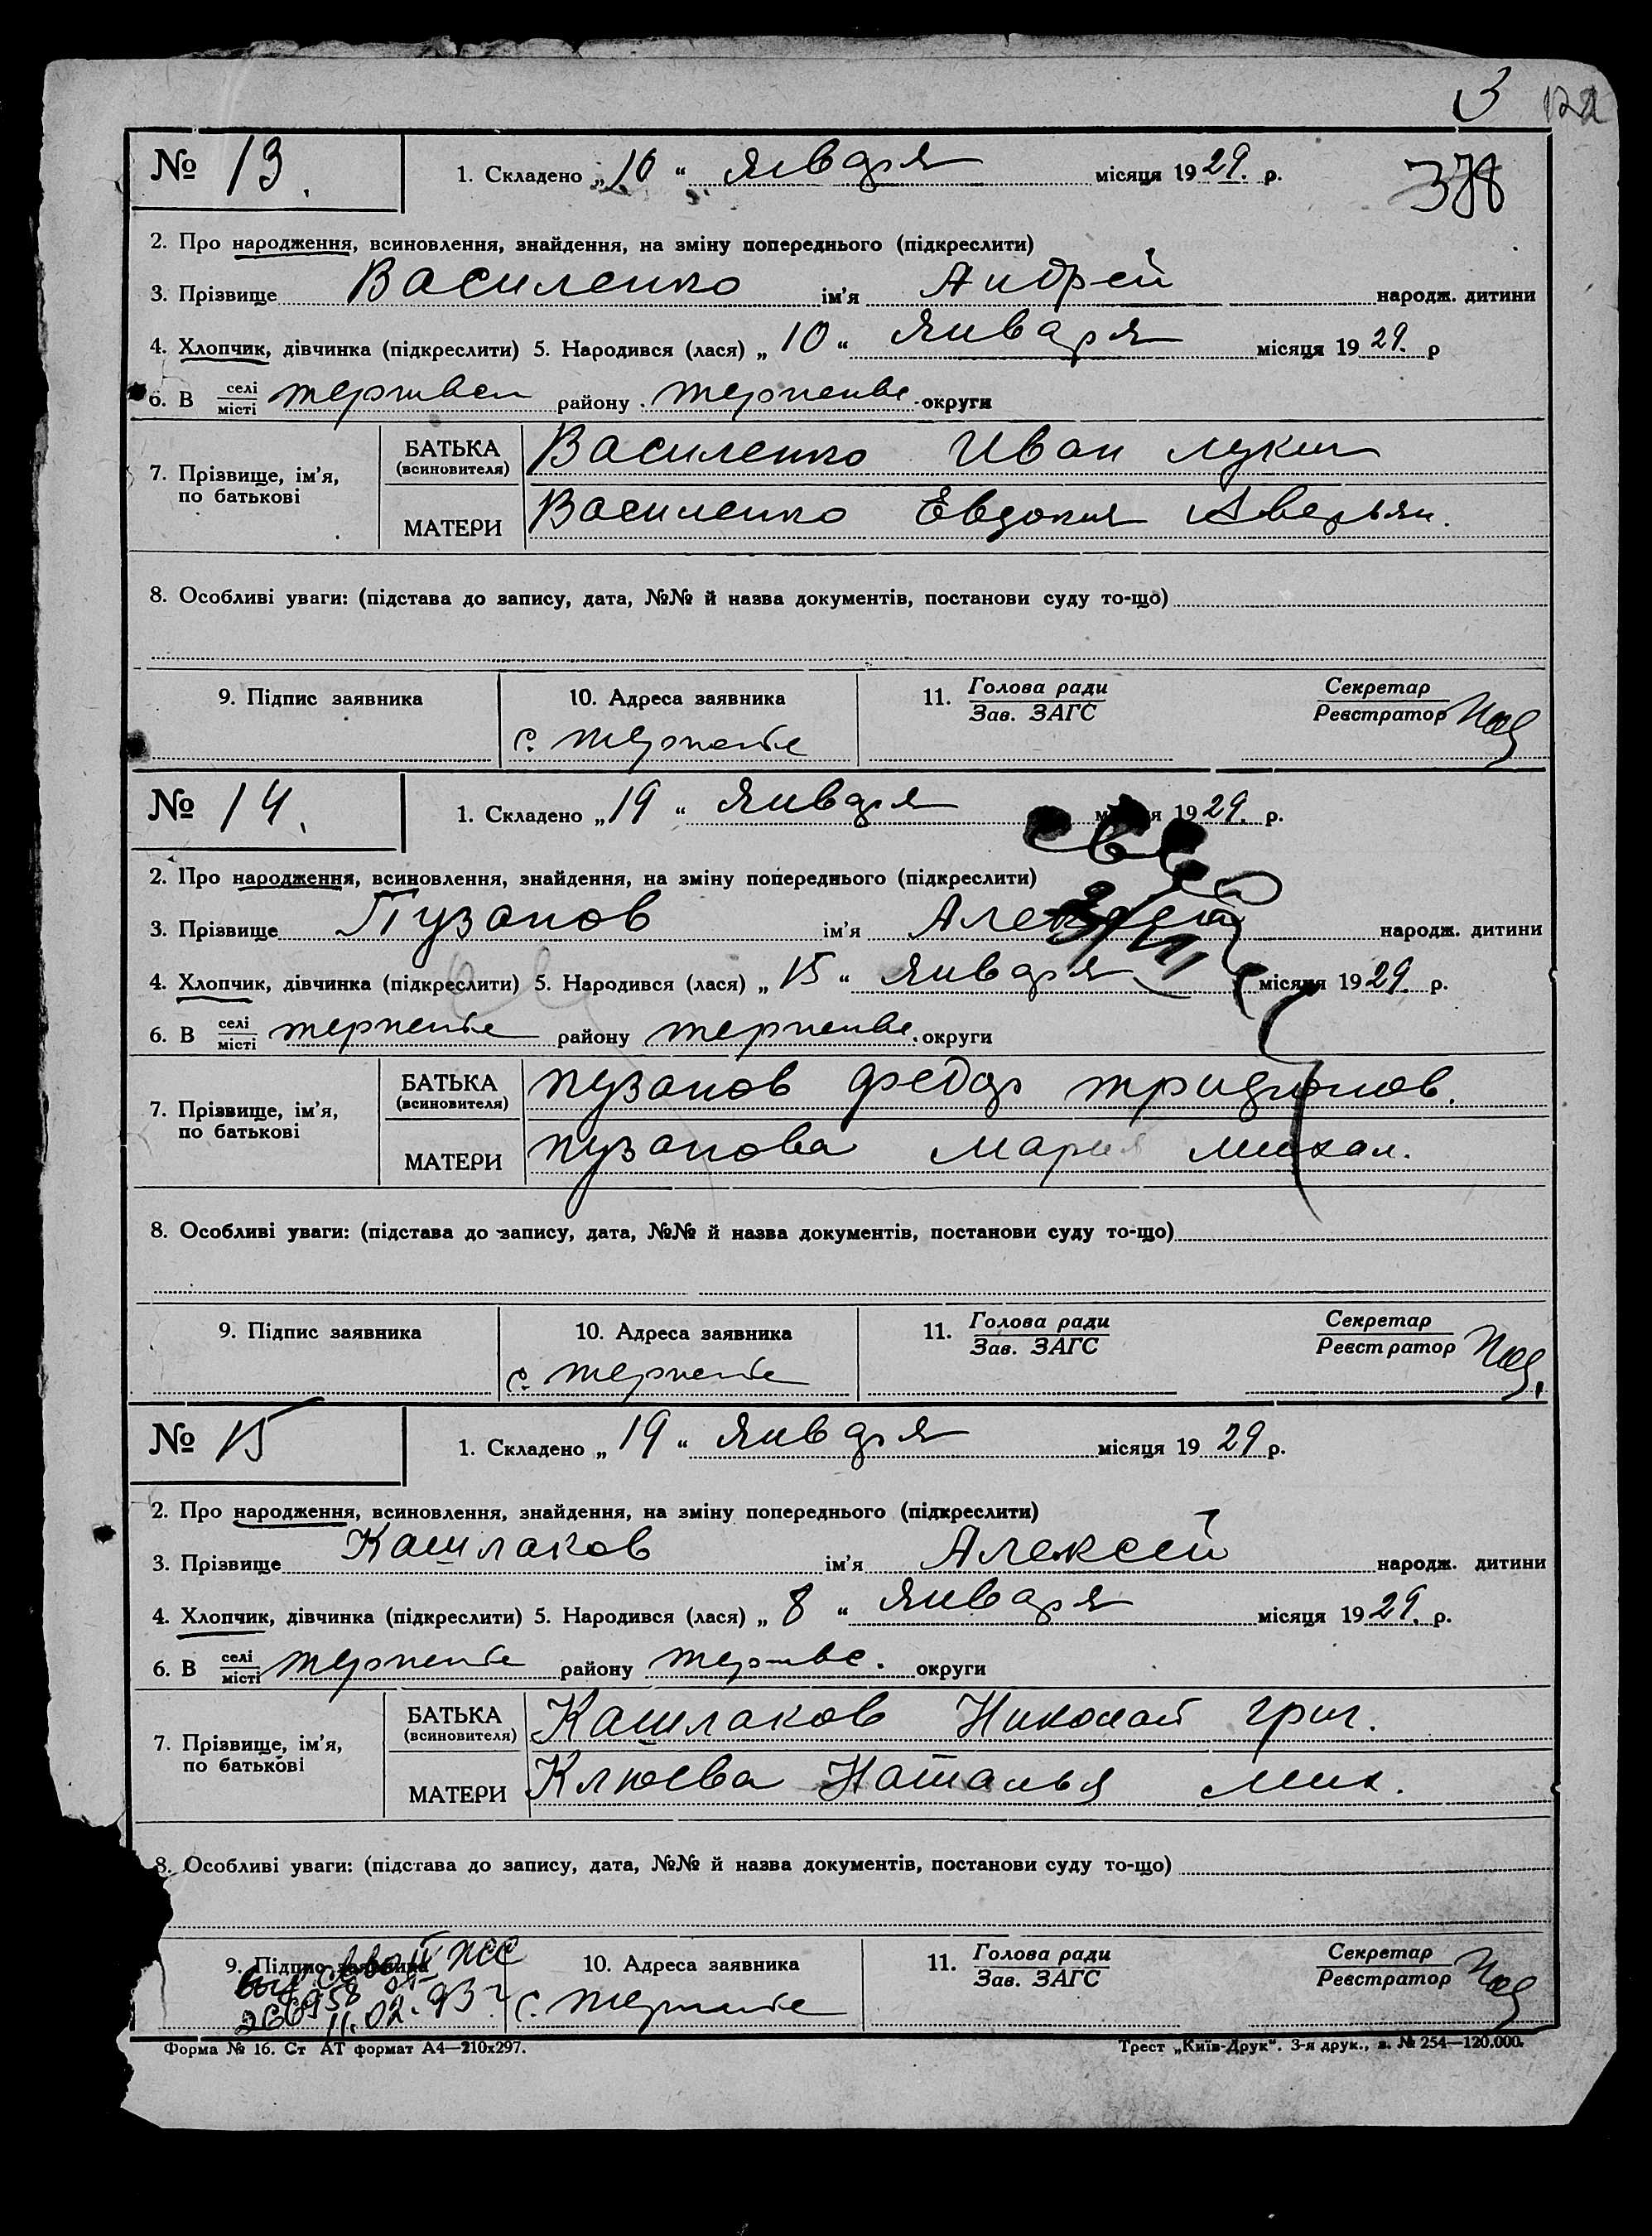 3 122
№ 13. 1. Складено „16“ января місяця 1929. р. 378
2. Про народження, всиновлення, знайдення, на зміну попереднього (підкреслити)
3. Прізвище Василенко ім'я Андрей народж. дитини
4. Хлопчик, дівчинка (підкреслити) 5. Народився (лася) „10“ января місяця 1929. р
6. В селі/місті району Терпенье. округи
7. Прізвище, ім'я, по батькові БАТЬКА (всиновителя) Василенко Иван Лукич
МАТЕРИ Василенко Евдокия Аверьян.
8. Особливі уваги: (підстава до запису, дата, №№ й назва документів, постанови суду то-що)
9. Підпис заявника 10. Адреса заявника 11. Голова ради Секретар
Зав. ЗАГС Реєстратор
с. Терпенье
№ 14. 1. Складено „19“ января місяця 1929. р.
2. Про народження, всиновлення, знайдення, на зміну попереднього (підкреслити)
3. Прізвище Пузанов ім'я Алексей народж. дитини
4. Хлопчик, дівчинка (підкреслити) 5. Народився (лася) „15“ января місяця 1929. р.
6. В селі/місті Терпенье району Терпенье. округи
7. Прізвище, ім'я, по батькові БАТЬКА (всиновителя) Пузанов Федор
МАТЕРИ Пузанова Мария Михал.
8. Особливі уваги: (підстава до запису, дата, №№ й назва документів, постанови суду то-що)
9. Підпис заявника 10. Адреса заявника 11. Голова ради Секретар
Зав. ЗАГС Реєстратор
с. Терпенье
№ 15 1. Складено „19“ января місяця 1929 р.
2. Про народження, всиновлення, знайдення, на зміну попереднього (підкреслити)
3. Прізвище Кашлаков ім'я Алексей народж. дитини
4. Хлопчик, дівчинка (підкреслити) 5. Народився (лася) „8“ января місяця 1929. р.
6. В селі/місті Терпенье району округи
7. Прізвище, ім'я, по батькові БАТЬКА (всиновителя) Кашлаков Николай Григ.
МАТЕРИ Клюева Наталья Мих.
8. Особливі уваги: (підстава до запису, дата, №№ й назва документів, постанови суду то-що)
9. Підпис заявника 10. Адреса заявника 11. Голова ради Секретар
Зав. ЗАГС Реєстратор
11.02.93 г с. Терпенье
Форма № 16. Ст АТ формат А4—210х297. Трест „Київ-Друк“. 3-я друк., з. № 254—120.000.